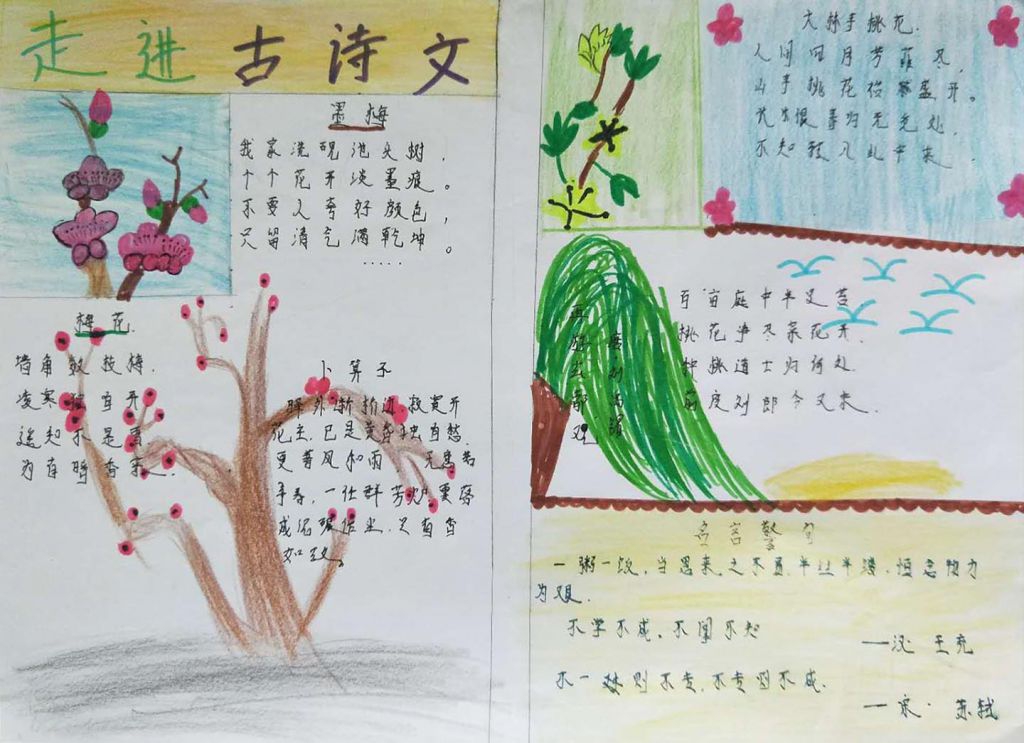 走进古诗文
墨梅
我家洗砚池头树，
个个花开淡墨痕。
不要人夸好颜色，
只留清气满乾坤。
.....
梅花
墙角数枝梅，
凌寒独自开
遥知不是雪
为有暗香来。
卜算子
驿外断桥边，寂寞开
花主，已是黄昏独自愁
更著风和雨 无意苦
争春，一任群芳妒零落
成泥碾作尘，只有香
如故。
大林寺桃花.
人间四月芳菲尽，
山寺桃花始盛开。
长恨春归无觅处，
不知转入此中来
再游玄都观
唐 刘禹锡
百亩庭中半是苔
桃花净尽菜花开
种桃道士归何处
前度刘郎今又来.
名言警句
一粥一饭，当思来之不易.半丝半缕，恒念物力
为艰.
不学不成，不问不知
—汉 王充
不一则不专，不专则不成.
—宋·苏轼